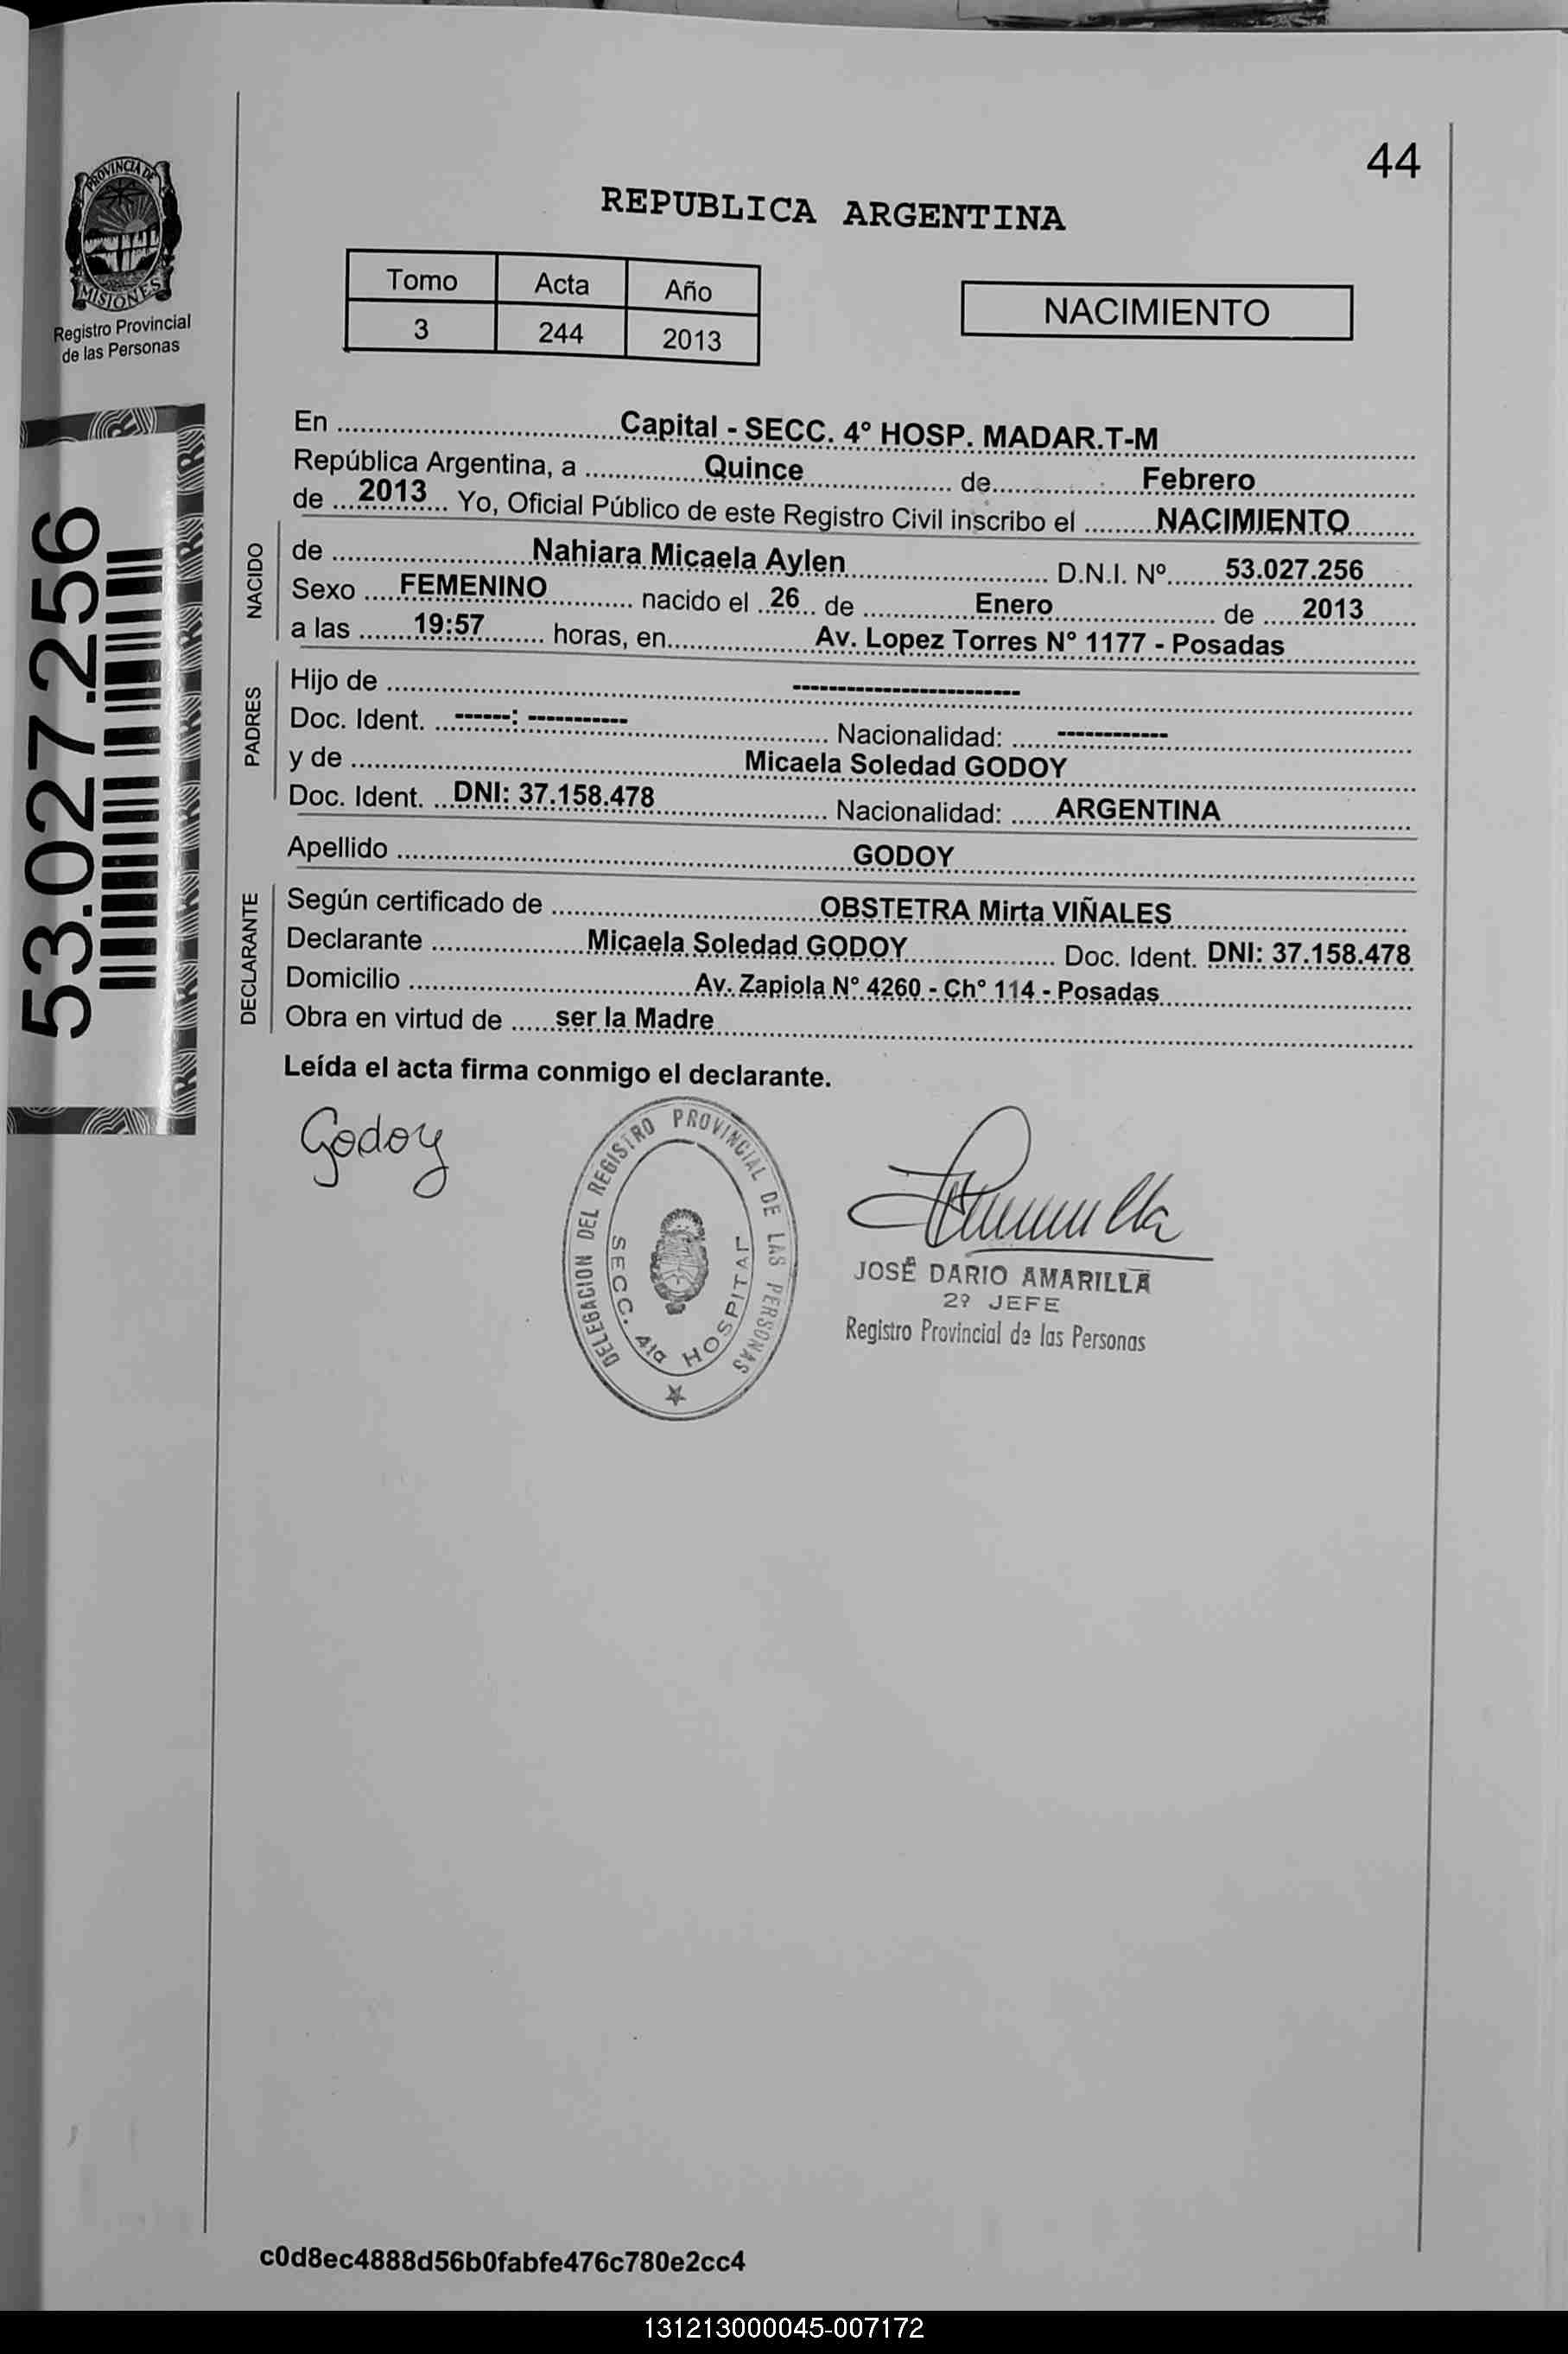 44
PROVINCIA DE
MISIONES
Registro Provincial
de las Personas
53.027.256
REPUBLICA ARGENTINA
Tomo Acta Año
3 244 2013
NACIMIENTO
En Capital - SECC. 4° HOSP. MADAR.T-M
República Argentina, a Quince de Febrero
de 2013 Yo, Oficial Público de este Registro Civil inscribo el NACIMIENTO
NACIDO
de Nahiara Micaela Aylen D.N.I. Nº 53.027.256
Sexo FEMENINO nacido el 26 de Enero de 2013
a las 19:57 horas, en Av. Lopez Torres N° 1177 - Posadas
PADRES
Hijo de -------------------------
Doc. Ident. ------: ----------- Nacionalidad: ------------
y de Micaela Soledad GODOY
Doc. Ident. DNI: 37.158.478 Nacionalidad: ARGENTINA
Apellido GODOY
DECLARANTE
Según certificado de OBSTETRA Mirta VIÑALES
Declarante Micaela Soledad GODOY Doc. Ident. DNI: 37.158.478
Domicilio Av. Zapiola N° 4260 - Ch° 114 - Posadas
Obra en virtud de ser la Madre
Leída el acta firma conmigo el declarante.
Godoy
DELEGACION DEL REGISTRO PROVINCIAL DE LAS PERSONAS
SECC. 4ta HOSPITAL
JOSÉ DARIO AMARILLA
2º JEFE
Registro Provincial de las Personas
c0d8ec4888d56b0fabfe476c780e2cc4
131213000045-007172